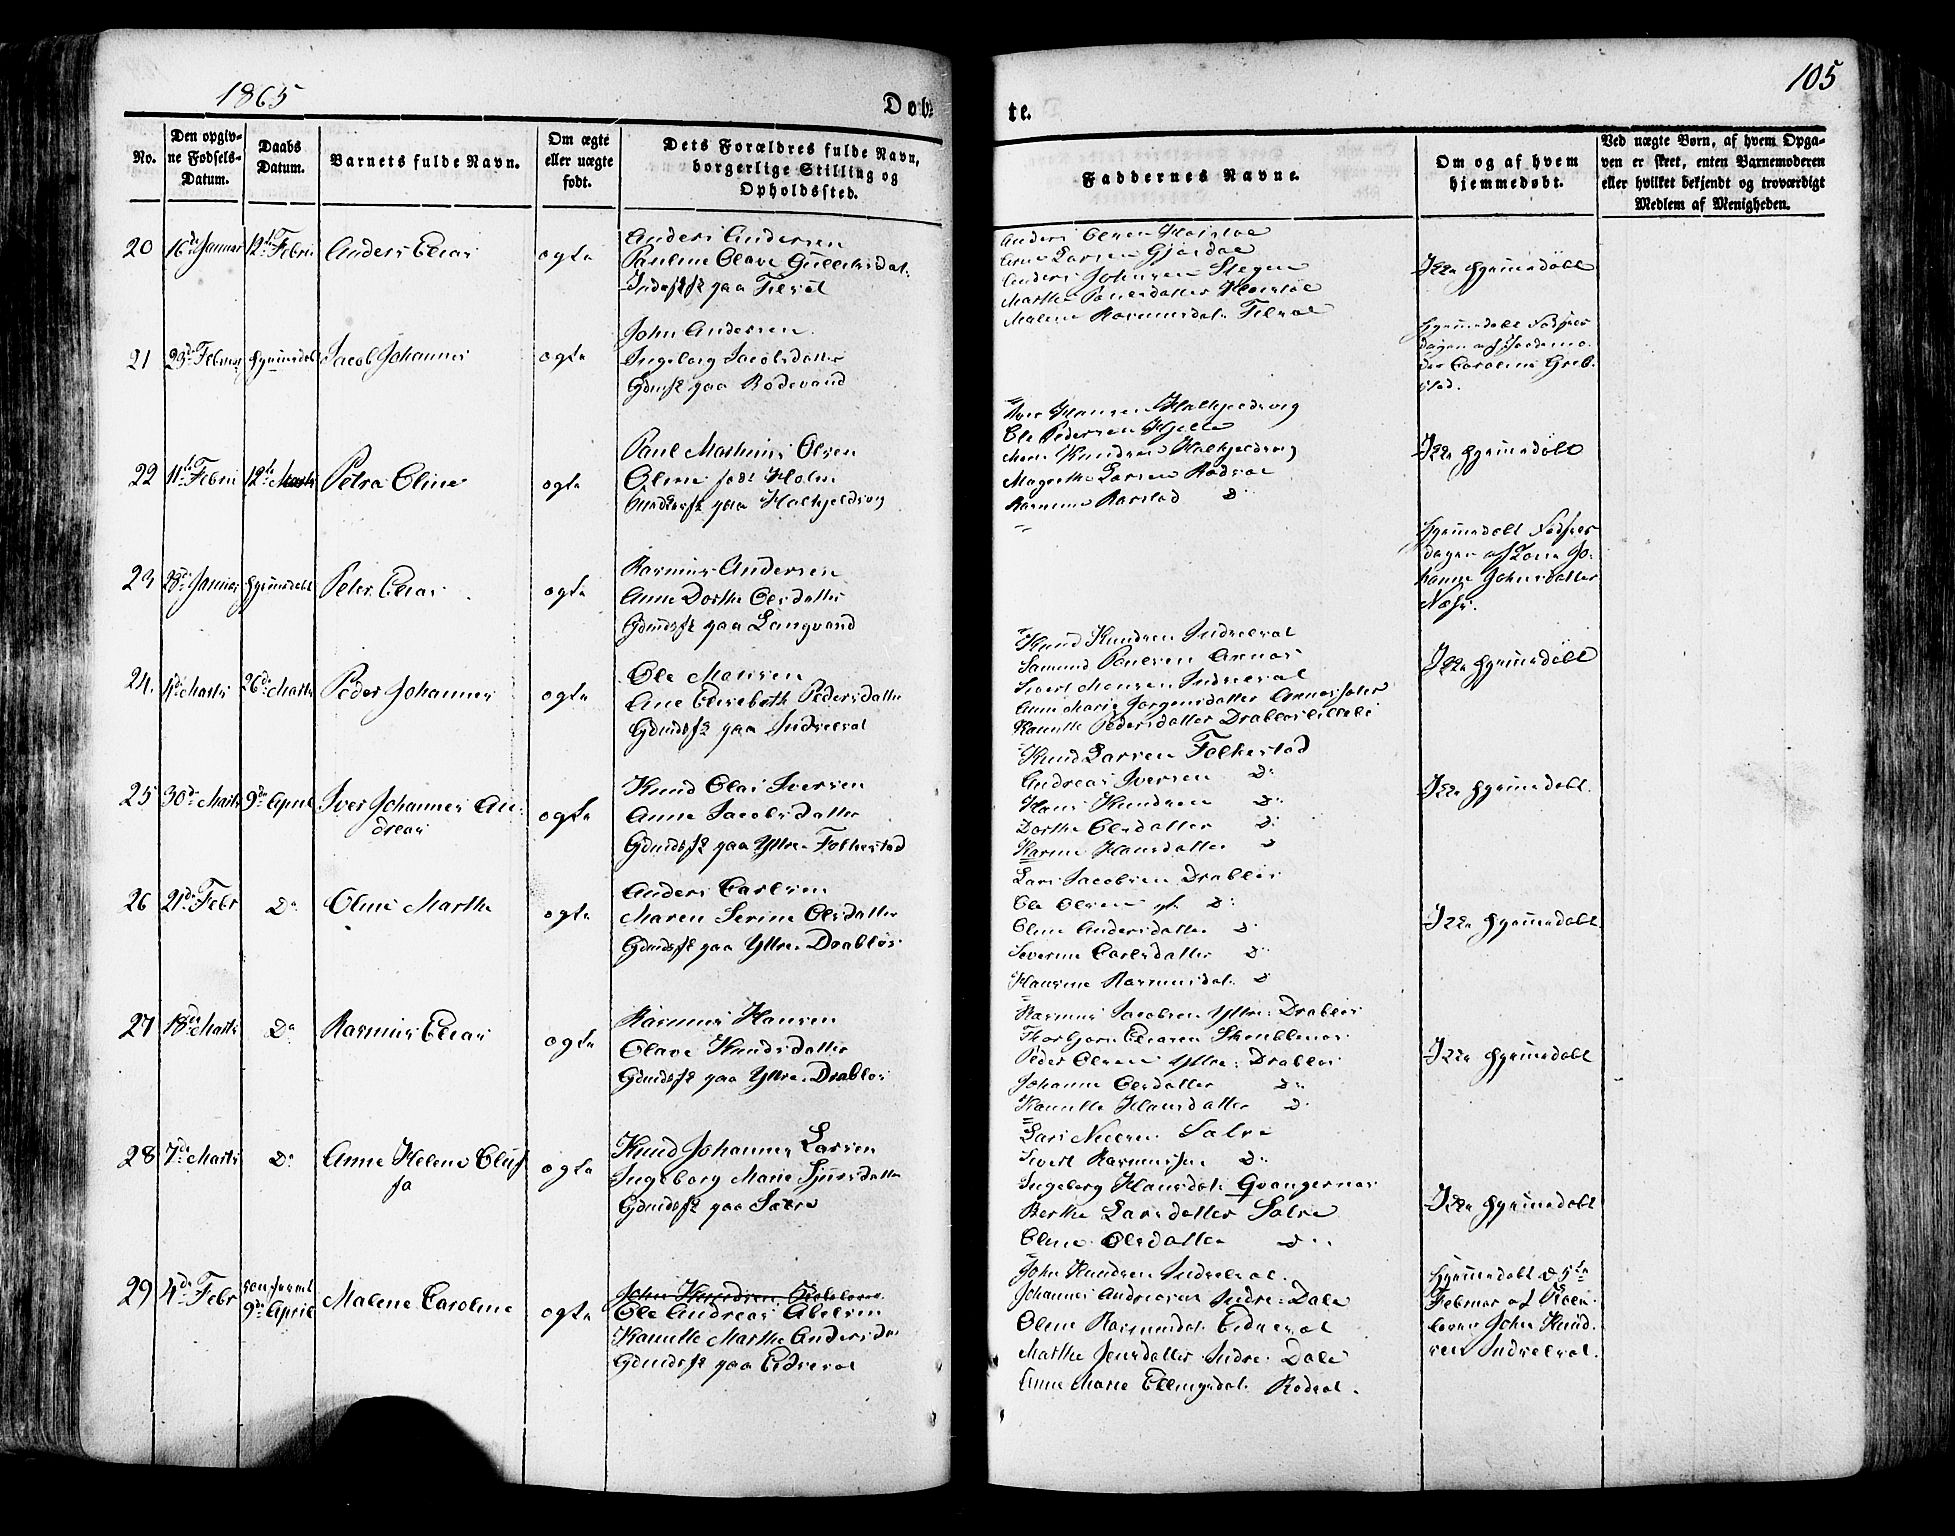 1865
105
Døb-
te.
No.
Den opgiv-
ne Fødsels-
Datum.
Daabs
Datum.
Barnets fulde Navn.
Om ægte
eller uægte
født.
Dets Forældres fulde Navn,
borgerlige Stilling og
Opholdssted.
Faddernes Navne.
Om og af hvem
hjemmedøbt.
Ved uægte Børn, af hvem Opga-
ven er skeet, enten Barnemoderen
eller hvilket bekjendt og troværdigt
Medlem af Menigheden.
20
16de Januar
12te Febr
Anders Elias
ægte
Anders Andersen
Pauline Olave Gullichsdat:
Inderst paa Tilset
Anders Olsen
Arne Larsen
Anders Johnsen Stegen
Marthe Poulsdatter
Malene Rasmusdat:
Ikke hjemmedøbt
21
23de Februar
hjemmedøbt
Jacob Johannes
ægte
John Andersen
Ingeborg Jacobsdatter
Gdmdsf paa Rødevand
hjemmedøbt Fødsels
dagen af Jordemo-
der Caroline Greb-
stad.
22
11te Febr
12te Marts
Petra Oline
ægte
Paul Mathias Olsen
Oline født Holm
Huusmdsf paa Halkjeldsvig
Iver Hansen Halkjeldsvig
Ole Pedersen Hjelle
Knudsen Halkjeldsvig
Magrethe Larsen
Rasmine Barstad D:
Ikke hjemmedøbt
23
28de Januar
hjemmedøbt
Peter Elias
ægte
Rasmus Andersen
Anne Dorthe Olsdatter
Gdmdsf paa Langvand
hjemmedøbt Fødsels
dagen af Lone Jo-
hanne Johnsdatter
Næss.
24.
4de Marts
26de Marts
Peder Johannes
ægte
Ole Monsen
Ane Elisabeth Pedersdatter
Gdmdsf paa Indreeral
Knud Knudsen Indreeral
Samund Poulsen Aurnes
Sivert Monsen Indreeral
Anne Marie Jørgensdatter
Kanutte Pedersdatter
Ikke hjemmedøbt
25
30de Marts
9de April
Iver Johannes An-
dreas
ægte
Knud Olai Iversen
Anne Jacobsdatter
Gdmdsf paa Yttre-Folkestad
Knud Larsen Folkestad
Andreas Iversen D:
Hans Knudsen D:
Dorthe Olsdatter D:
Karine Hansdatter D
Ikke hjemmedøbt.
26
21de Febr
Do
Oline Marthe
ægte
Anders Carlsen
Maren Serine Olsdatter
Gdmdsf paa Yttre-Drabløs
Lars Jacobsen Drabløs
Ole Olsen D:
Oline Andersdatter D:
Severine Carlsdatter D:
Hansine Rasmusdat: D
Ikke hjemmedøbt
27
18de Marts
Do
Rasmus Elias
ægte
Rasmus Hansen
Olave Knudsdatter
Gdmdsf paa Yttre-Drabløs
Rasmus Jacobsen Yttre-Drabløs
Thorbjørn Eliasen
Peder Olsen Yttre-Drabløs
Johanne Olsdatter D:
Kanutte Hansdatter D.
Ikke hjemmedøbt
28
7de Marts
Do
Anne Helene Oluf-
sa
ægte
Knud Johannes Larsen
Ingeborg Marie Sjursdatter
Gdmdsf paa Sætre
Lars Nilsen Sætre
Sivert Rasmussen D:
Ingeborg Hansdat:
Berthe Larsdatter Sætre
Oline Olsdatter D:
Ikke hjemmedøbt
29
4de Febr
confirmt
9de April
Malene Caroline
ægte
John Knudsen
Ole Andreas Abelsen
Kanutte Marthe Andersdat
Gdmdsf paa
John Knudsen Indreeral.
Johannes Andreassen Indre-Dale
Oline Rasmusdat:
Marthe Jensdatter Indre-Dale
Anne Marie Ellingsdat:
hjemmedøbt d 5te
Februar af
John Knud-
sen Indreeral.